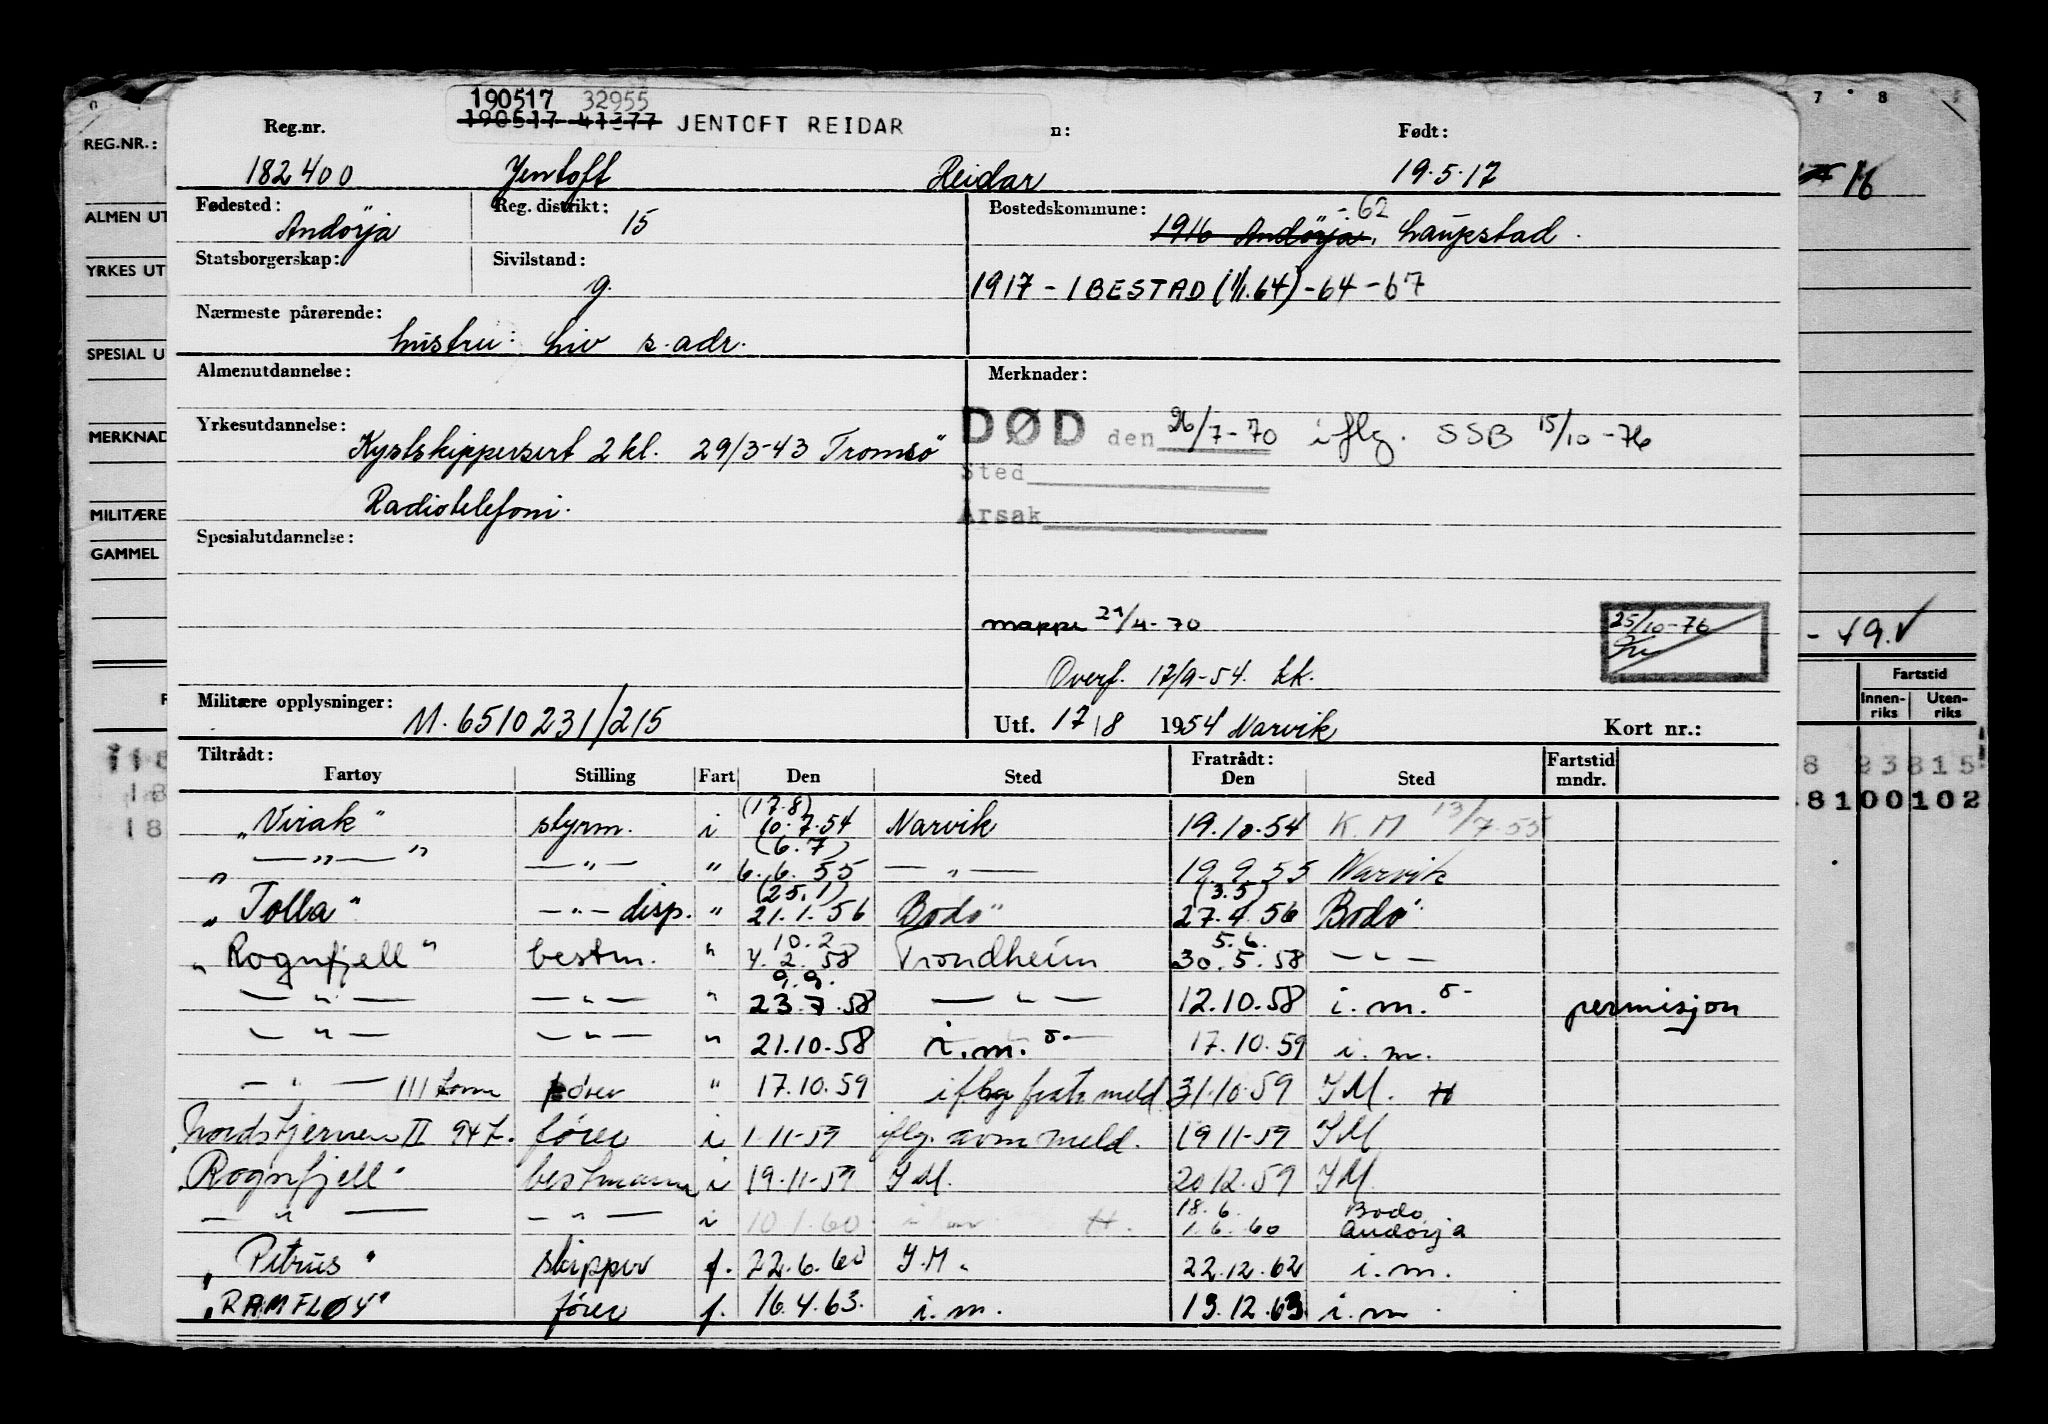 190517 32955
190517 41377 JENTOFT REIDAR
Reg.nr. n: Født:
182400 Jentoft Reidar 19.5.17
Fødested: Andörja Reg. distrikt: 15 Bostedskommune: -62
1916 Andörja, Laupstad.
Statsborgerskap: Sivilstand: g. 1917 - IBESTAD (1/1.64) -64-67
Nærmeste pårørende:
hustru: Liv s. adr.
Almenutdannelse: Merknader:
Yrkesutdannelse: DØD den 26/7-70 iflg. SSB 15/10-76
Kystskippersert 2 kl. 29/3-43 Tromsö
Sted
Radiotelefoni. Årsak
Spesialutdannelse:
mappe 21/4-70 25/10-76
Overf. 17/9-54. kk.
Militære opplysninger: M. 6510231/215 Utf. 17/8 1954 Narvik Kort nr.:
Tiltrådt: Fratrådt: Fartstid
Fartøy Stilling Fart Den Sted Den Sted mndr.
(17.8)
"Virak" styrm. i 10.7.54 Narvik 19.10.54 K.M 13/7.55
(6.7)
" —"— " —"— " 6.6.55 —"— 19.9.55 Narvik
(25.1) (3.5)
"Tolla" —"— disp. " 21.1.56 Bodö 27.4.56 Bodö
10.2 5.6.
"Rognfjell" bestm. " 4.2.58 Trondheim 30.5.58 —"—
9.9.
—"— —"— " 23.7.58 —"— 12.10.58 i.m. permisjon
—"— —"— " 21.10.58 i.m. 17.10.59 i.m.
—"— 111 tonn fører " 17.10.59 iflg fratr meld. 31.10.59 I.M. H
Nordstjernen II 94 t. fører i 1-11-59 iflg. avm meld. 19 11-59 IM
Rognfjell" bestmann i 19-11-59 IM. 20 12.59 IM.
18.6. Bodo
—"— —"— i 10.1.60. H. 1.6.60 Andørja
"Petrus" skipper f. 22.6.60 I.M. 22.12.62 i.m.
"RAMFLØY" fører f. 16.4.63. i.m. 13.12.63 i.m
REG.NR.:
ALMEN UT
YRKES UT
SPESIAL U
MERKNAD
MILITÆRE
GAMMEL
7 8
16
- 49.
Fartstid
Innen-riks Uten-riks
8 23815
8100102